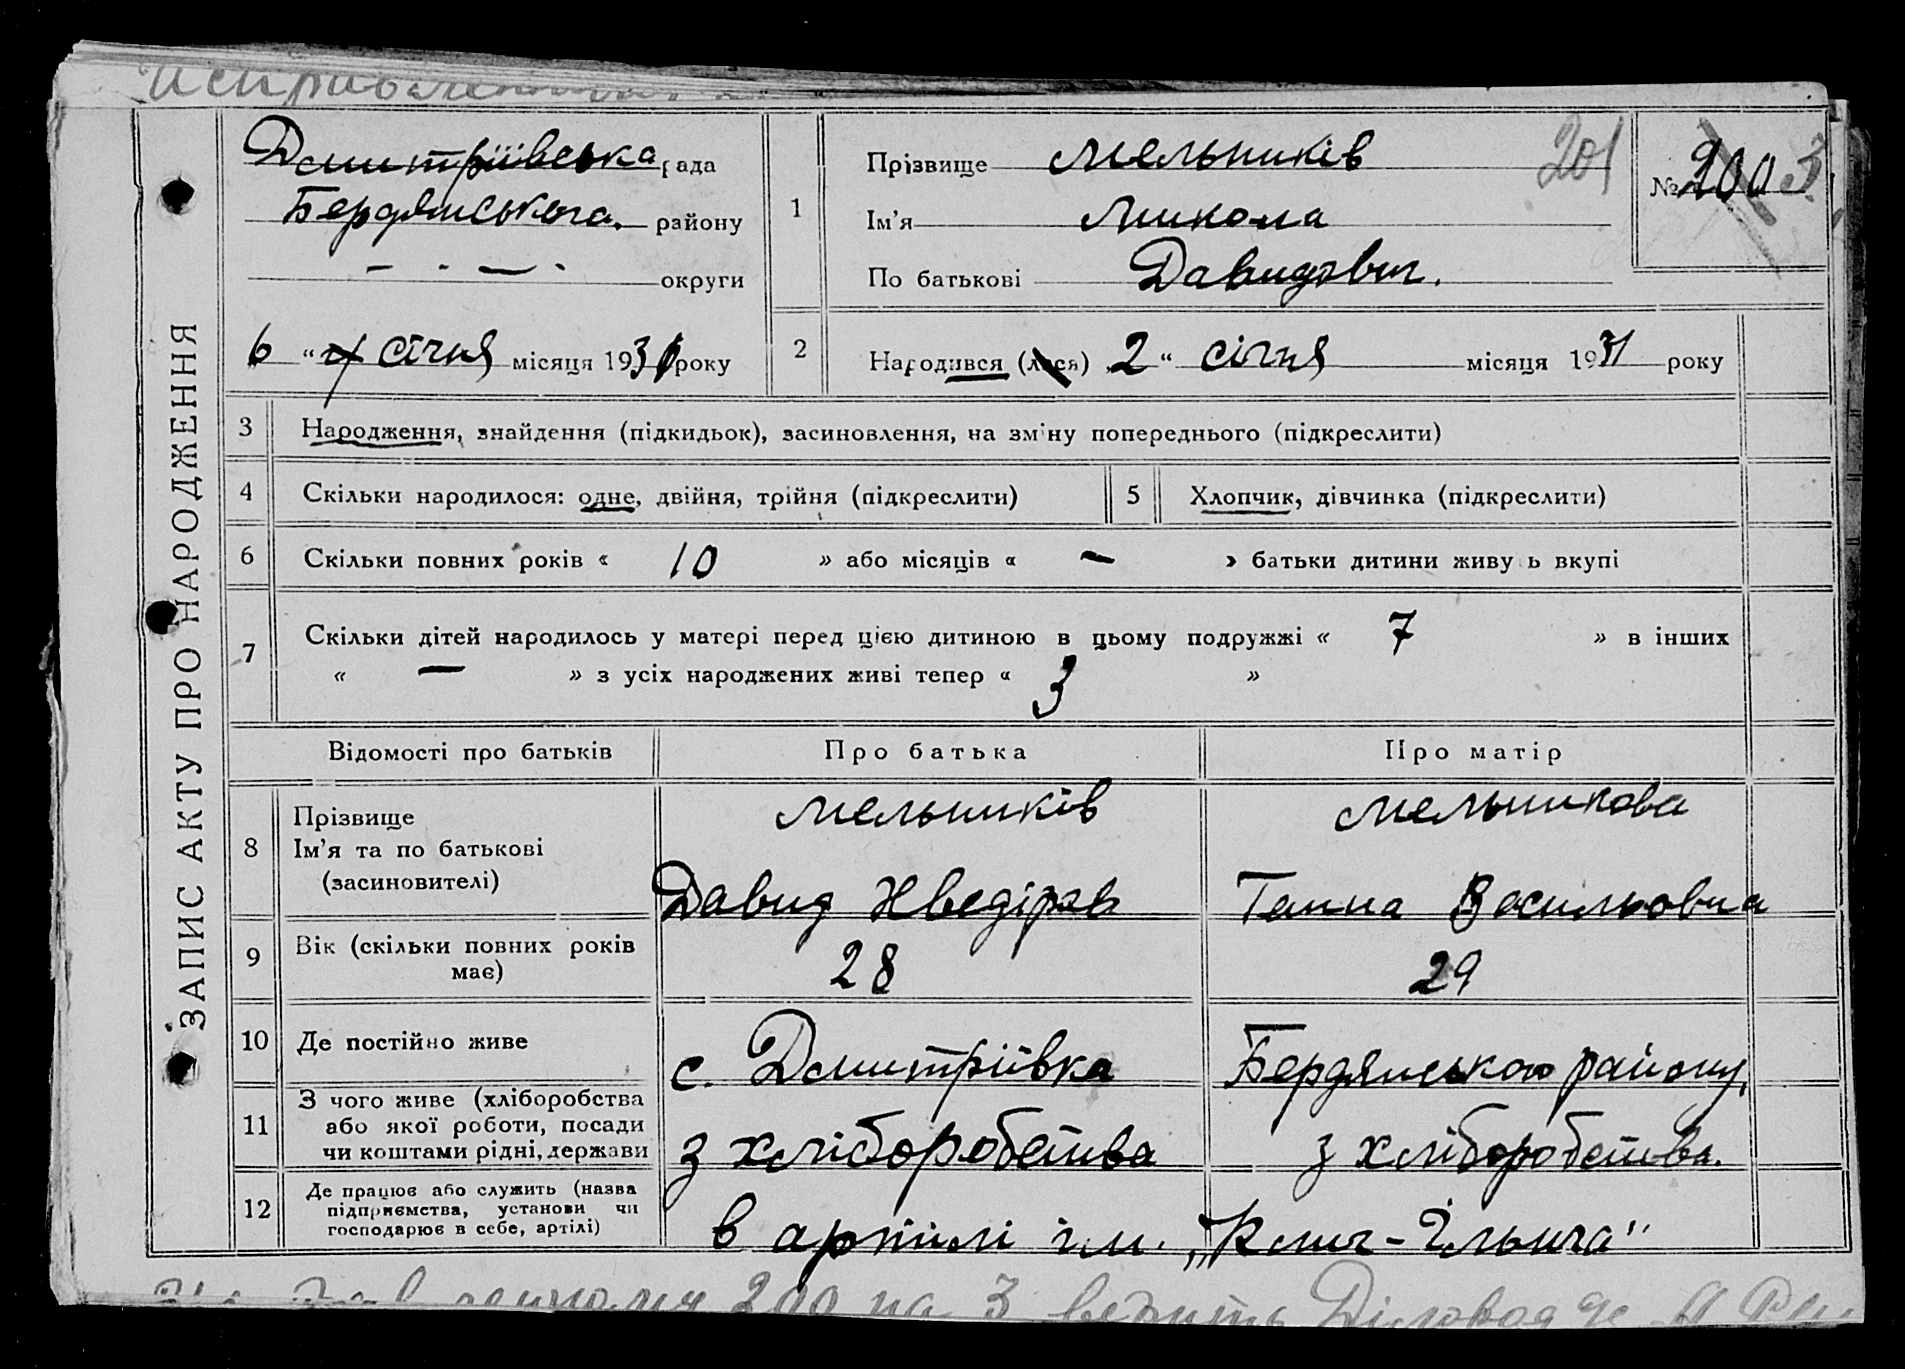 Исправленному
ЗАПИС АКТУ ПРО НАРОДЖЕННЯ
Дмитріївська рада
Бердянського району
— . — . округи
6 " січня місяця 1931 року
1
Прізвище Мельників
201
№ 200 3
Ім'я Микола
По батькові Давидович.
2
Народився (лася) 2 " січня місяця 1931 року
3 Народження, знайдення (підкидьок), засиновлення, на зміну попереднього (підкреслити)
4 Скільки народилося: одне, двійня, трійня (підкреслити) 5 Хлопчик, дівчинка (підкреслити)
6 Скільки повних років « 10 » або місяців « — » батьки дитини живуть вкупі
7 Скільки дітей народилось у матері перед цією дитиною в цьому подружжі « 7 » в інших
« — » з усіх народжених живі тепер « 3 »
Відомості про батьків Про батька Про матір
8 Прізвище Мельників Мельникова
Ім'я та по батькові Давид Ганна Васильовна
(засиновителі)
9 Вік (скільки повних років має) 28 29
10 Де постійно живе с. Дмитріївка Бердянського району,
11 З чого живе (хліборобства
або якої роботи, посади
чи коштами рідні, держави з хліборобства з хліборобства.
12 Де працює або служить (назва
підприємства, установи чи
господарює в себе, артілі) в артілі ім. „Клич-Ільича"
200 на 3 Діловод